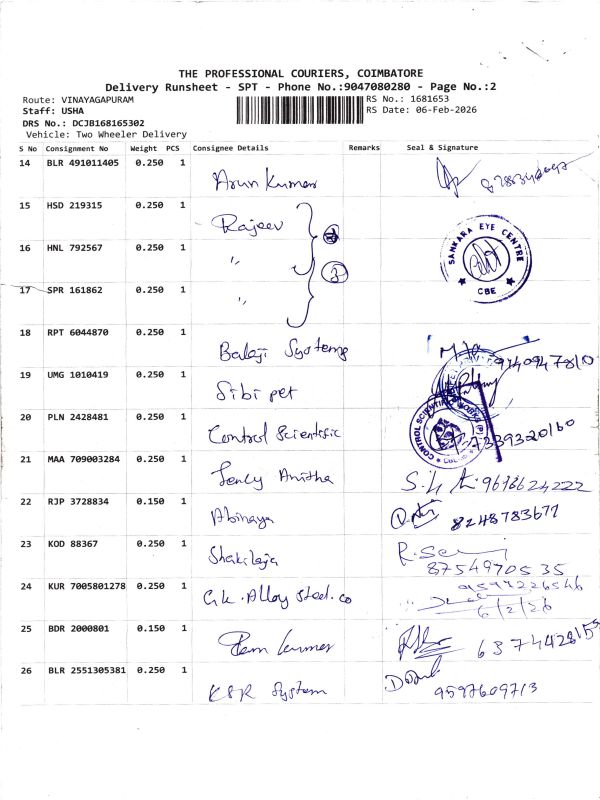 THE PROFESSIONAL COURIERS, COIMBATORE
Delivery Runsheet - SPT - Phone No.:9047080280 - Page No.:2
Route: VINAYAGAPURAM
RS No.: 1681653
Staff: USHA
RS Date: 06-Feb-2026
DRS No.: DCJB168165302
Vehicle: Two Wheeler Delivery
S No Consignment No Weight PCS Consignee Details Remarks Seal & Signature
14 BLR 491011405 0.250 1 Arun Kumar
15 HSD 219315 0.250 1 Rajeev
16 HNL 792567 0.250 1 " 3 SANKARA EYE CENTRE CBE
17 SPR 161862 0.250 1 "
18 RPT 6044870 0.250 1 Balaji Systems
19 UMG 1010419 0.250 1 Sibi pet
20 PLN 2428481 0.250 1 Control Scientific 7339320160
21 MAA 709003284 0.250 1 Anitha 9618624222
22 RJP 3728834 0.150 1 Abinaya 8248783677
23 KOD 88367 0.250 1 Shakilaja 8754970535
24 KUR 7005801278 0.250 1 G.K. Alloy Steel. co 9597226546
6/2/26
25 BDR 2000801 0.150 1 Ram kumar
26 BLR 2551305381 0.250 1 KSR System 9597609713